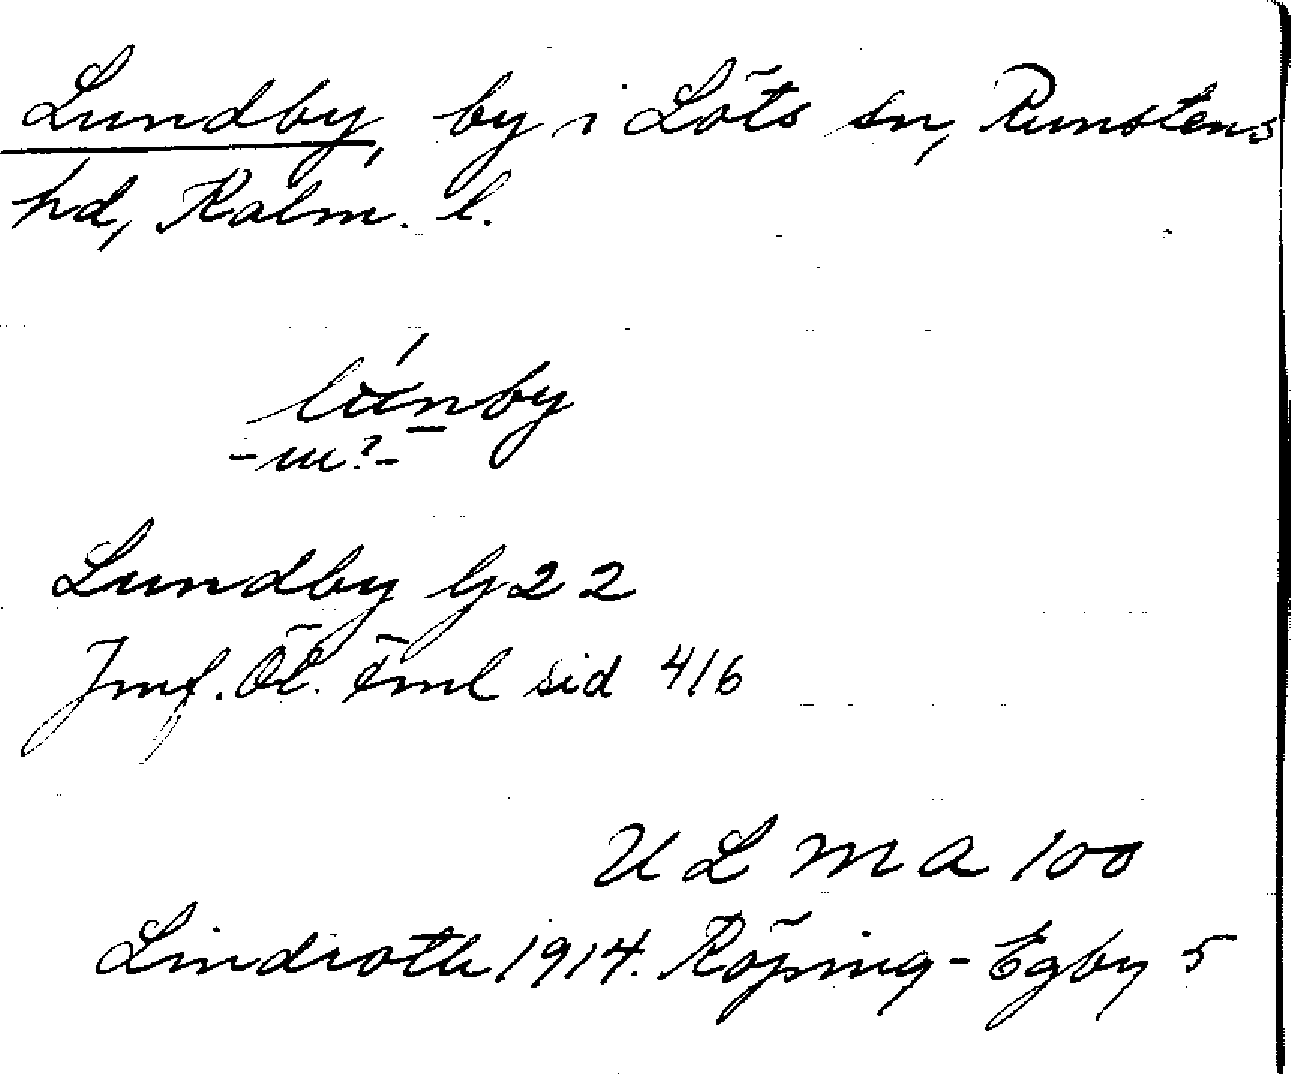 Lundby, by i Löts sn, Runstens
hd, Kalm. l.
lúnby
-m?-
Lundby G 22
Jmf. Öl. fml sid 416
U L M A 100
Lindroth 1914. Köping-Egby 5